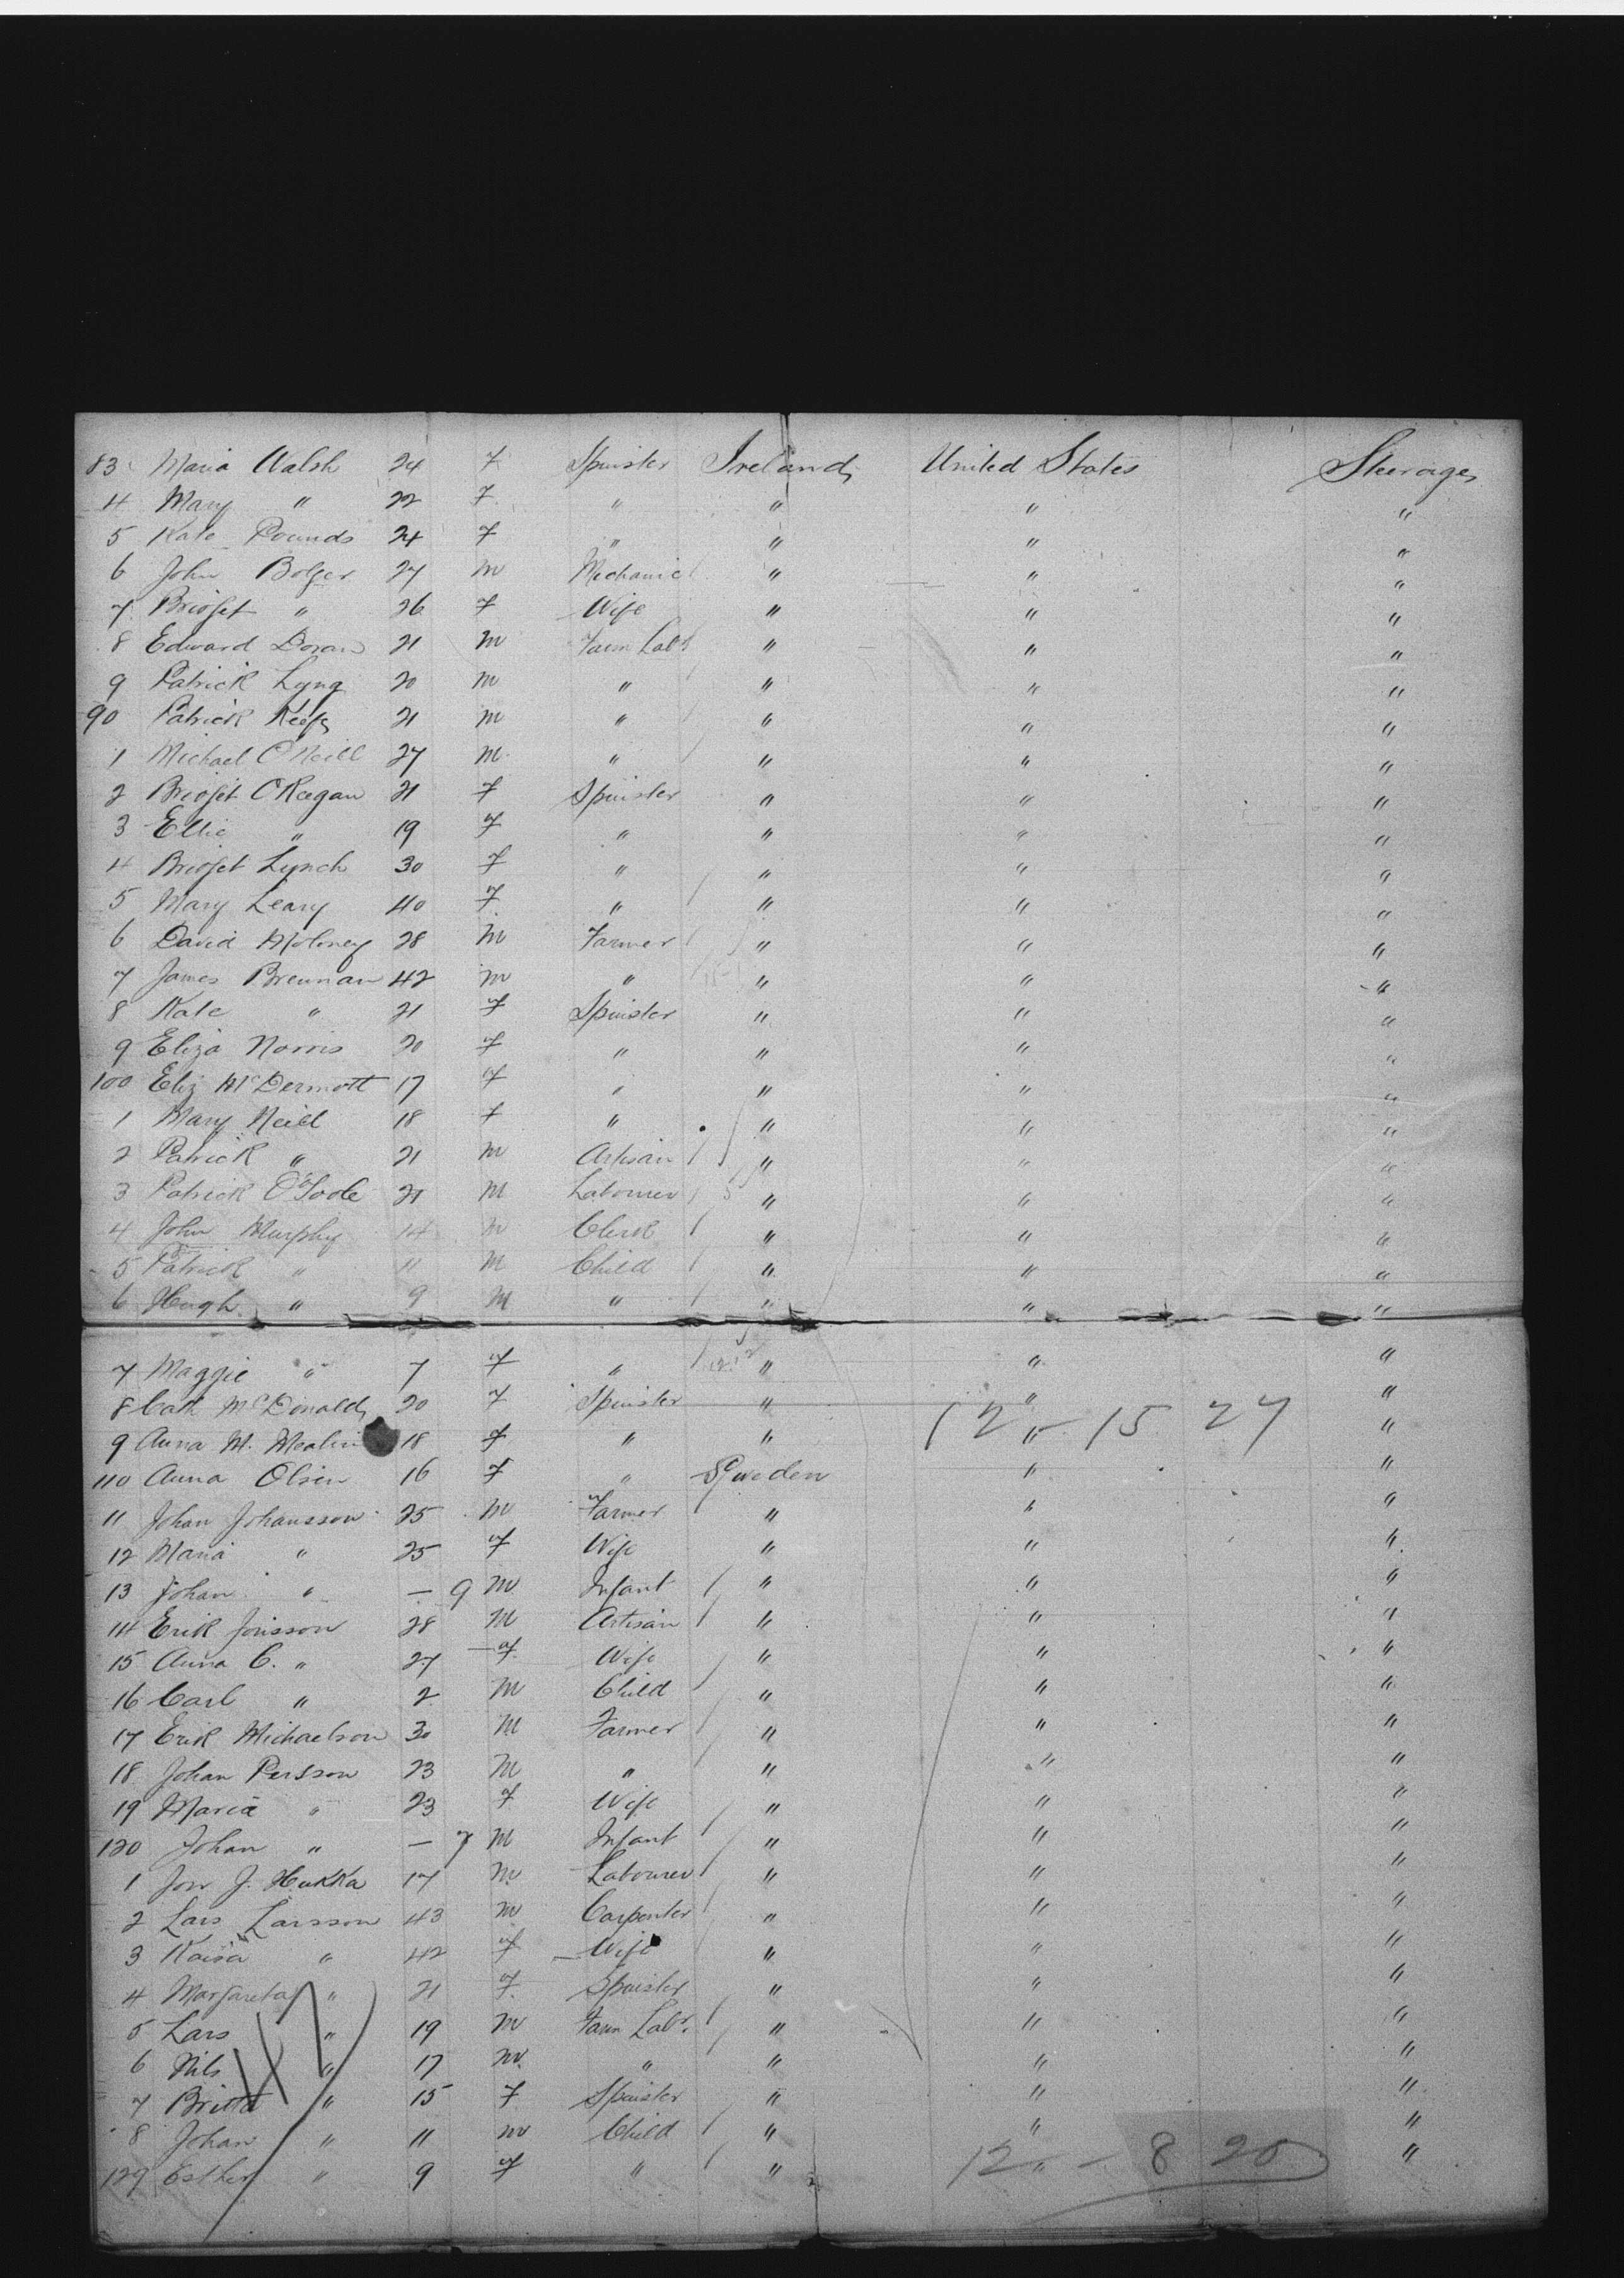 83 Maria Walsh 24 F Spinster Ireland United States Steerage
4 Mary " 22 F " " " "
5 Kate Pounds 24 F " " " "
6 John Bolger 27 M Mechanic " " "
7 Bridget " 26 F Wife " " "
8 Edward Doran 21 M Farm Labr " " "
9 Patrick Lyng 20 M " " " "
90 Patrick Keefe 21 M " " " "
1 Michael O'Neill 27 M " " " "
2 Bridget O'Regan 21 F Spinster " " "
3 Ellie " 19 F " " " "
4 Bridget Lynch 30 F " " " "
5 Mary Leary 40 F " " " "
6 David Moloney 28 M Farmer " " "
7 James Brennan 42 M " " " "
8 Kate " 21 F Spinster " " "
9 Eliza Norris 20 F " " " "
100 Eliz McDermott 17 F " " " "
1 Mary Neill 18 F " " " "
2 Patrick " 21 M Artisan " " "
3 Patrick O'Toole 21 M Labourer " " "
4 John Murphy 14 M Clerk " " "
5 Patrick " 11 M Child " " "
6 Hugh " 9 M " " " "
7 Maggie " 7 F " " " "
8 Cath McDonald 20 F Spinster " " "
12 - 15 27
9 Anna M. 18 F " " " "
110 Anna Olsen 16 F " Sweden " "
11 Johan Johansson 25 M Farmer " " "
12 Maria " 25 F Wife " " "
13 Johan " — 9 M Infant " " "
14 Erik Jonsson 28 M Artisan " " "
15 Anna C. " 27 F Wife " " "
16 Carl " 2 M Child " " "
17 Erik Michaelson 30 M Farmer " " "
18 Johan Persson 23 M " " " "
19 Maria " 23 F Wife " " "
120 Johan " — 7 M Infant " " "
1 Jon J. Hukka 17 M Labourer " " "
2 Lars Larsson 43 M Carpenter " " "
3 Kaisa " 42 F Wife " " "
4 Margareta " 21 F Spinster " " "
5 Lars " 19 M Farm Labr. " " "
6 Nils " 17 M " " " "
47
7 Britta " 15 F Spinster " " "
8 Johan " 11 M Child " " "
129 Esther " 9 F " " " "
12 - 8 20